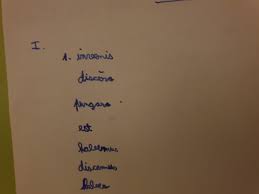 I.
1. invenis
discere
pergere
est
habemus
discemus